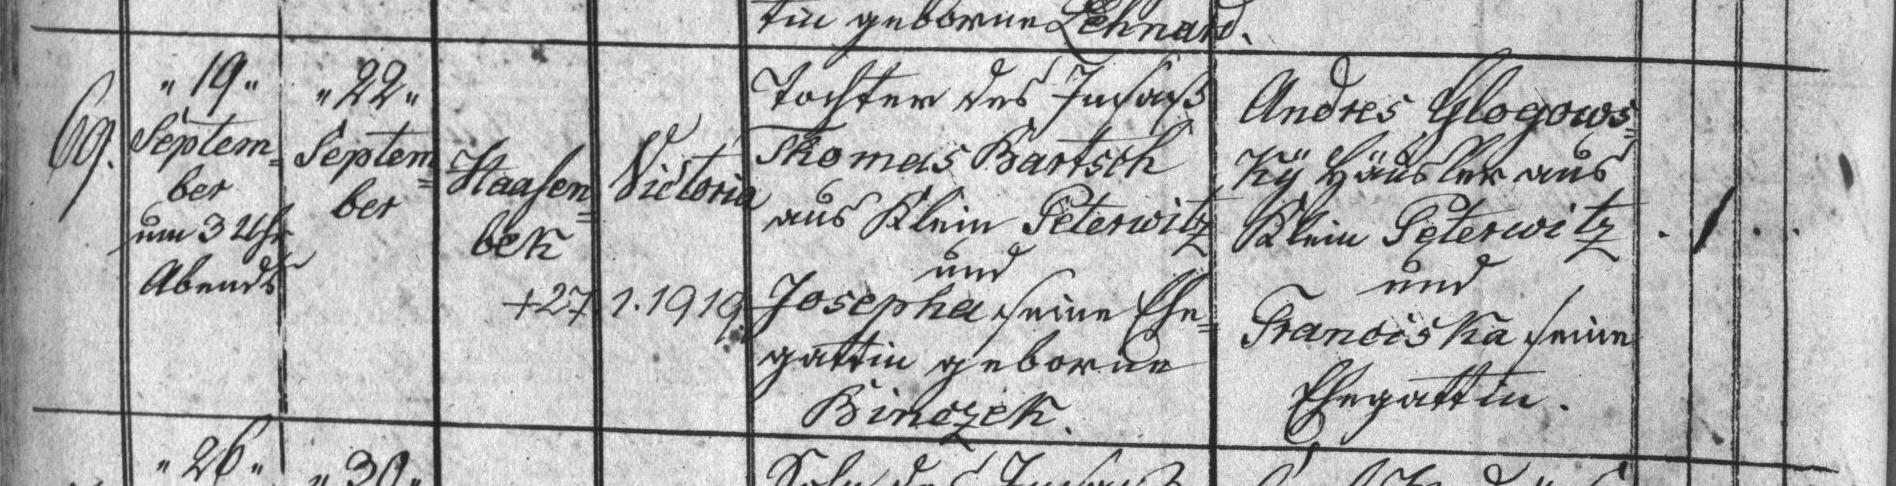 tin geborne Lehnard.
69.
„19„
Septem=
ber
um 3 Uhr
Abends
„22„
Septem
=
ber
Haasen=
bek
Victoria
+27 1.1919
Tochter des Insaß
Thomas Bartsch
aus Klein Peterwitz
und
Josepha seine Ehe=
gattin geborne
Binczek.
Andres Glogows=
Ky Häusler aus
Klein Peterwitz
und
Franciska seine
Ehegattin.
. 1 . .
„26„
„30„
Sohn des Insaß